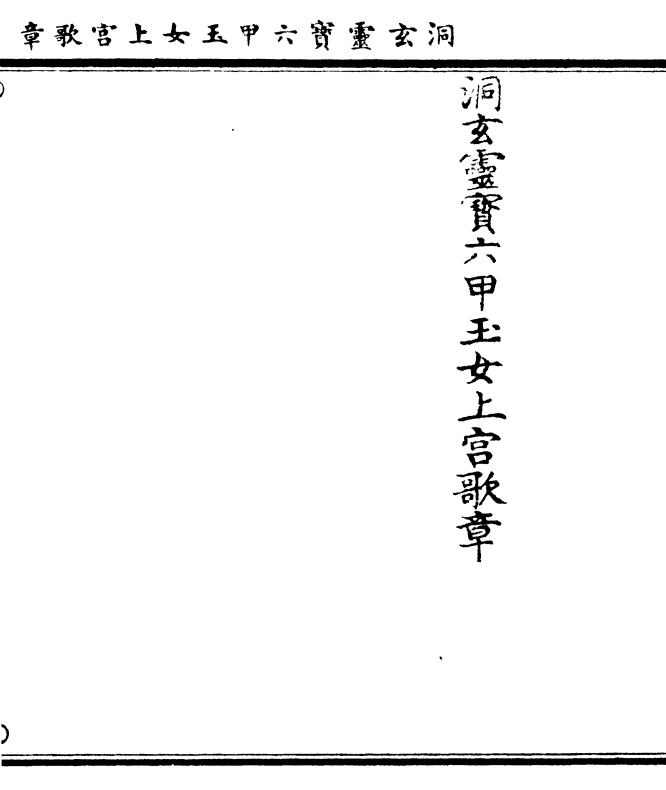 洞玄靈寶六甲玉女上宮歌章
洞玄靈寶六甲玉女上宮歌章